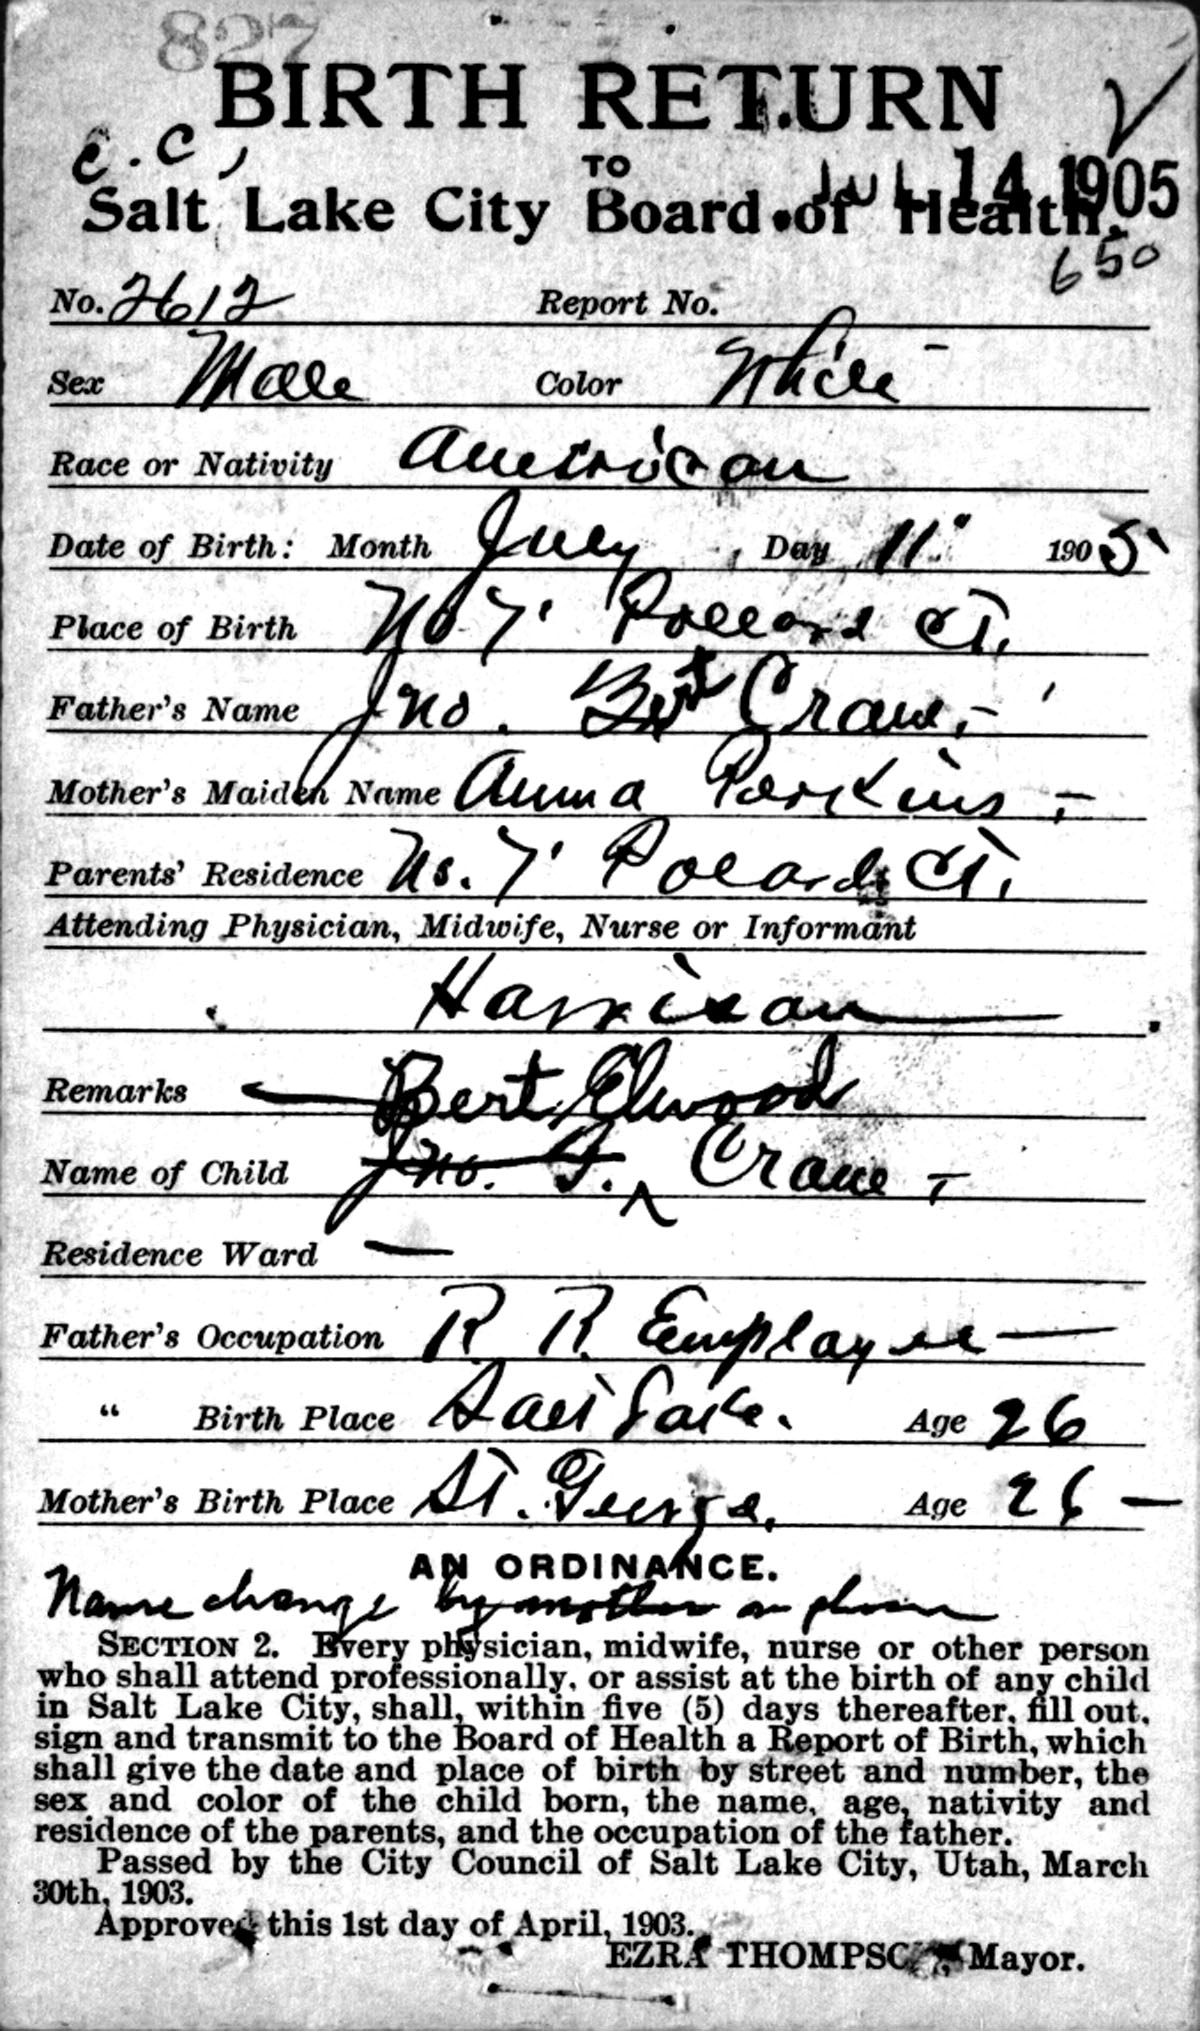 827
BIRTH RETURN
C. C,
TO
JUL 14 1905
Salt Lake City Board of Health.
650
No. 2612 Report No.
Sex Male Color White
Race or Nativity American
Date of Birth: Month July Day 11 1905
Place of Birth No 7 Pollard Ct.
Father's Name Jno. Bert Crane
Mother's Maiden Name Anna Perkins
Parents' Residence No. 7 Polard Ct.
Attending Physician, Midwife, Nurse or Informant
Harrison
Remarks Bert Elwood
Name of Child Jno. F. Crane
Residence Ward —
Father's Occupation R R Employee
" Birth Place Salt Lake. Age 26
Mother's Birth Place St. George. Age 26
AN ORDINANCE.
Name change by mother on phone
SECTION 2. Every physician, midwife, nurse or other person
who shall attend professionally, or assist at the birth of any child
in Salt Lake City, shall, within five (5) days thereafter, fill out,
sign and transmit to the Board of Health a Report of Birth, which
shall give the date and place of birth by street and number, the
sex and color of the child born, the name, age, nativity and
residence of the parents, and the occupation of the father.
Passed by the City Council of Salt Lake City, Utah, March
30th, 1903.
Approved this 1st day of April, 1903.
EZRA THOMPSON, Mayor.